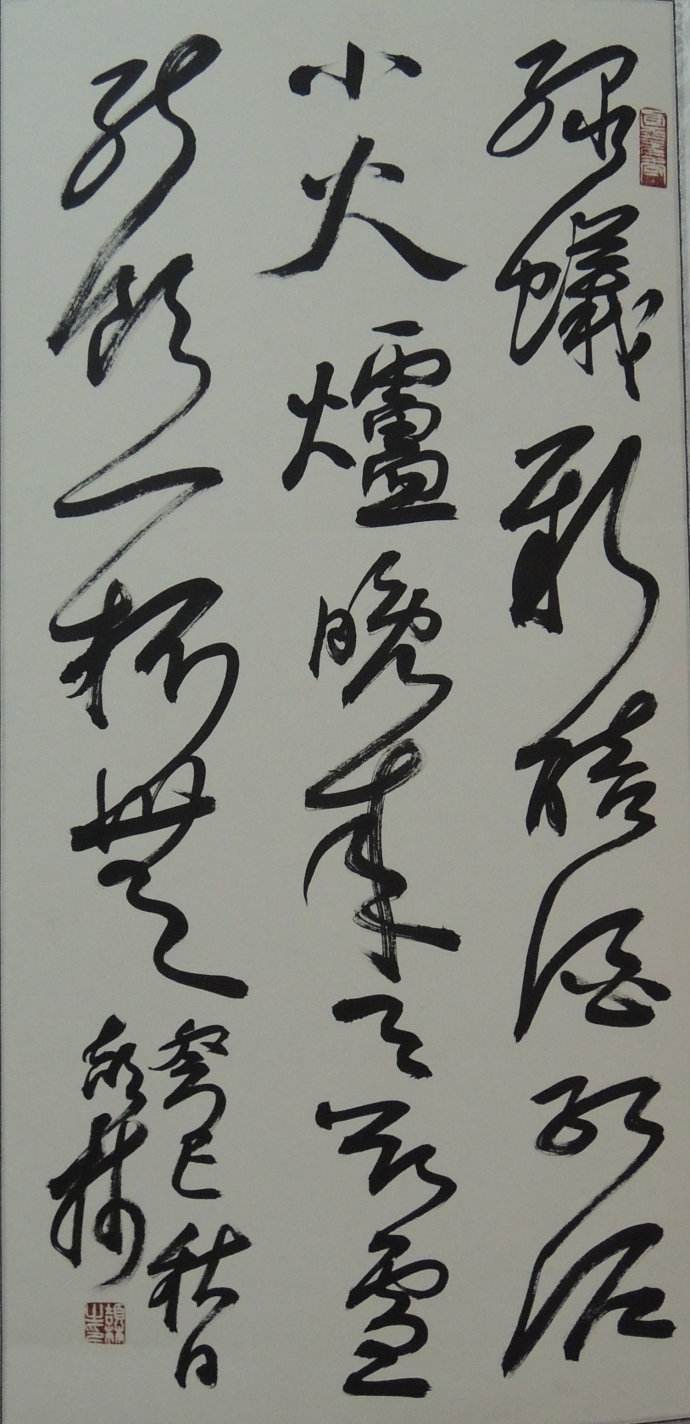 綠蟻新醅酒紅泥
小火爐晚來天欲雪
能飲一杯無
癸巳秋日